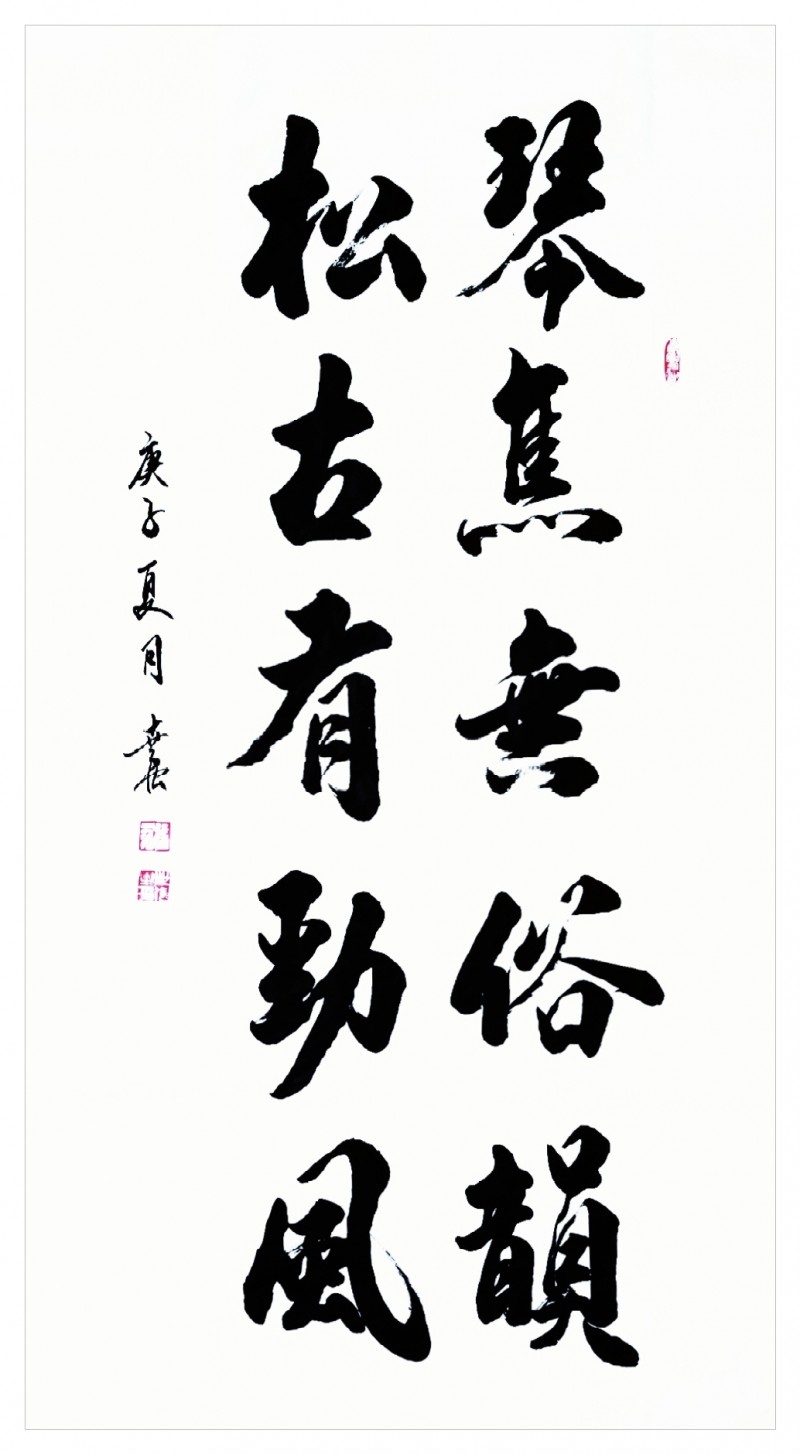 琴焦無俗韻
松古有勁風
庚子夏月